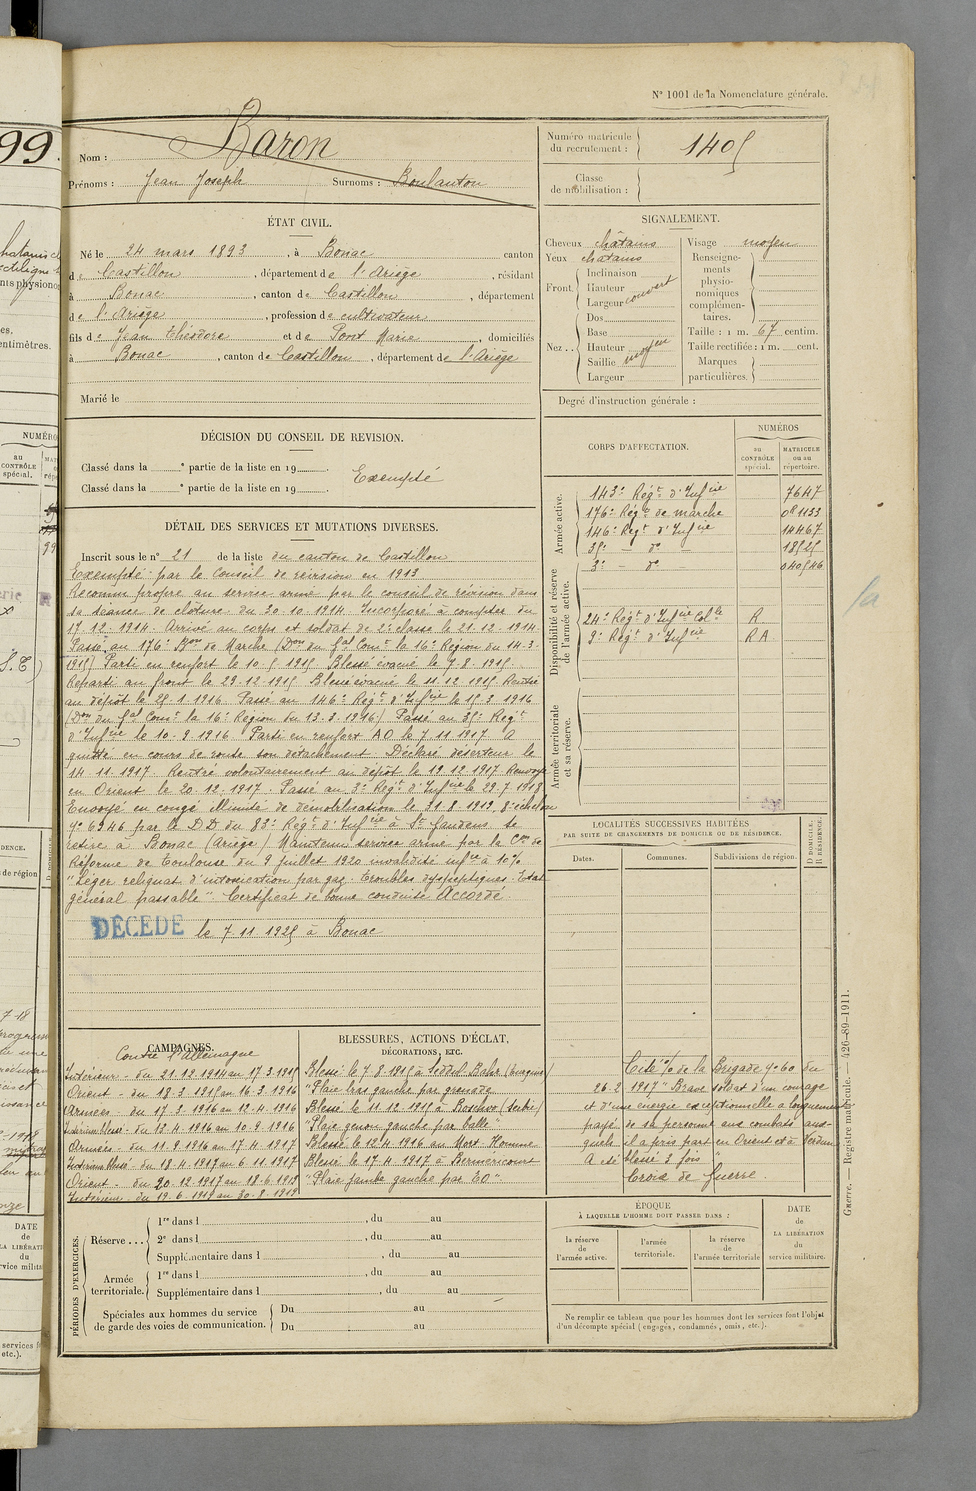 N° 1001 de la Nomenclature générale.
99.
Nom : Baron
Prénoms : Jean Joseph Surnoms : Boulanton
Numéro matricule du recrutement : 1405
Classe de mobilisation :
ÉTAT CIVIL.
Né le 24 mars 1893, à Bonac canton
de Castillon, département de l'Ariège, résidant
à Bonac, canton de Castillon, département
de l'Ariège, profession de cultivateur
fils de Jean Théodore et de Pont Marie, domiciliés
à Bonac, canton de Castillon, département de l'Ariège
Marié le
SIGNALEMENT.
Cheveux châtains
Yeux châtains
Front. Inclinaison
Hauteur
Largeur couvert
Nez.. Dos
Base
Hauteur
Saillie moyen
Largeur
Visage moyen
Renseignements physionomiques complémentaires.
Taille : 1 m. 67 centim.
Taille rectifiée : 1 m. cent.
Marques particulières.
Degré d'instruction générale :
DÉCISION DU CONSEIL DE REVISION.
Classé dans la e partie de la liste en 19
Classé dans la e partie de la liste en 19
Exempté
CORPS D'AFFECTATION.
NUMÉROS
au CONTRÔLE spécial.
MATRICULE ou au répertoire.
Armée active.
143e Régt d'Infie 7647
176e Régt de marche 08 1133
146e Régt d'Infie 14467
35e — do — 18525
3e — do — 040546
Disponibilité et réserve de l'armée active.
24e Régt d'Infie Colle R
9e Régt d'Infie RA
Armée territoriale et sa réserve.
DÉTAIL DES SERVICES ET MUTATIONS DIVERSES.
Inscrit sous le n° 21 de la liste du canton de Castillon
Exempté par le Conseil de révision en 1913
Reconnu propre au service armé par le conseil de révision dans
sa séance de clôture du 30.10.1914. Incorporé à compter du
17.12.1914. Arrivé au corps et soldat de 2e classe le 21.12.1914
Passé au 176e Bon de Marche (Don du Gal Comt la 16e Région du 14-3-
1915) Parti en renfort le 10.5.1915 Blessé évacué le 7.8.1915.
Reparti au front le 29.12.1915 Blessé évacué le 11.12.1915 Rentré
au dépôt le 25.1.1916 Passé au 146e Régt d'Infie le 15.3.1916
(Don du Gal Comt la 16e Région du 13.3.1916) Passé au 35e Régt
d'Infie le 10.9.1916 Parti en renfort AO le 7.11.1917 A
quitté en cours de route son détachement. Déclaré déserteur le
14.11.1917 Rentré volontairement au dépôt le 19.12.1917 Renvoyé
en Orient le 20.12.1917. Passé au 3e Régt d'Infie le 29.7.1918
Envoyé en congé illimité de démobilisation le 31.8.1919 8e échelon
no 6946 par le DD du 83e Régt d'Infie à St Gaudens se
retire à Bonac (Ariège) Maintenu service armé par la Con de
Réforme de Toulouse du 9 juillet 1920 invalidité infre à 10%
"Léger reliquat d'intoxication par gaz. Troubles dyspeptiques. Etat
général passable". Certificat de bonne conduite Accordé
DÉCÉDÉ le 7 11 1925 à Bonac
LOCALITÉS SUCCESSIVES HABITÉES
PAR SUITE DE CHANGEMENTS DE DOMICILE OU DE RÉSIDENCE.
Dates. Communes. Subdivisions de région.
D DOMICILE. R RÉSIDENCE.
CAMPAGNES.
Contre l'Allemagne
Intérieur - du 21.12.1914 au 17.3.1915
Orient - du 18.3.1915 au 16.3.1916
Armées - du 17.3.1916 au 12.4.1916
Intérieur blessé - du 12.4.1916 au 10.9.1916
Armées - du 11.9.1916 au 17.4.1917
Intérieur blessé - du 18.4.1917 au 6.11.1917
Orient - du 20.12.1917 au 18.6.1919
Intérieur - du 19.6.1919 au 30.8.1919
BLESSURES, ACTIONS D'ÉCLAT,
DÉCORATIONS, ETC.
Blessé le 7.8.1915 à Seddul Bahr (Turquie)
"Plaie bras gauche par grenade
Blessé le 11.12.1915 à (Serbie)
"Plaie genou gauche par balle"
Blessé le 12.4.1916 au Mort-Homme
Blessé le 17.4.1917 à Berméricourt
"Plaie jambe gauche par EO".
Cité % de la Brigade no 60 du
26.2.1917 "Brave soldat d'un courage
et d'une énergie exceptionnelle a longuement
payé de sa personne aux combats aux-
quels il a pris part en Orient et à Verdun
A été blessé 3 fois"
Croix de Guerre.
PÉRIODES D'EXERCICES.
Réserve... 1re dans l , du au
2e dans l , du au
Supplémentaire dans l , du au
Armée territoriale. 1re dans l , du au
Supplémentaire dans l , du au
Spéciales aux hommes du service de garde des voies de communication. Du au
Du au
ÉPOQUE
À LAQUELLE L'HOMME DOIT PASSER DANS :
la réserve de l'armée active.
l'armée territoriale.
la réserve de l'armée territoriale
DATE de la LIBÉRATION du service militaire.
Ne remplir ce tableau que pour les hommes dont les services font l'objet
d'un décompte spécial (engagés, condamnés, omis, etc.).
Guerre. — Registre matricule. — 426-89-1911.